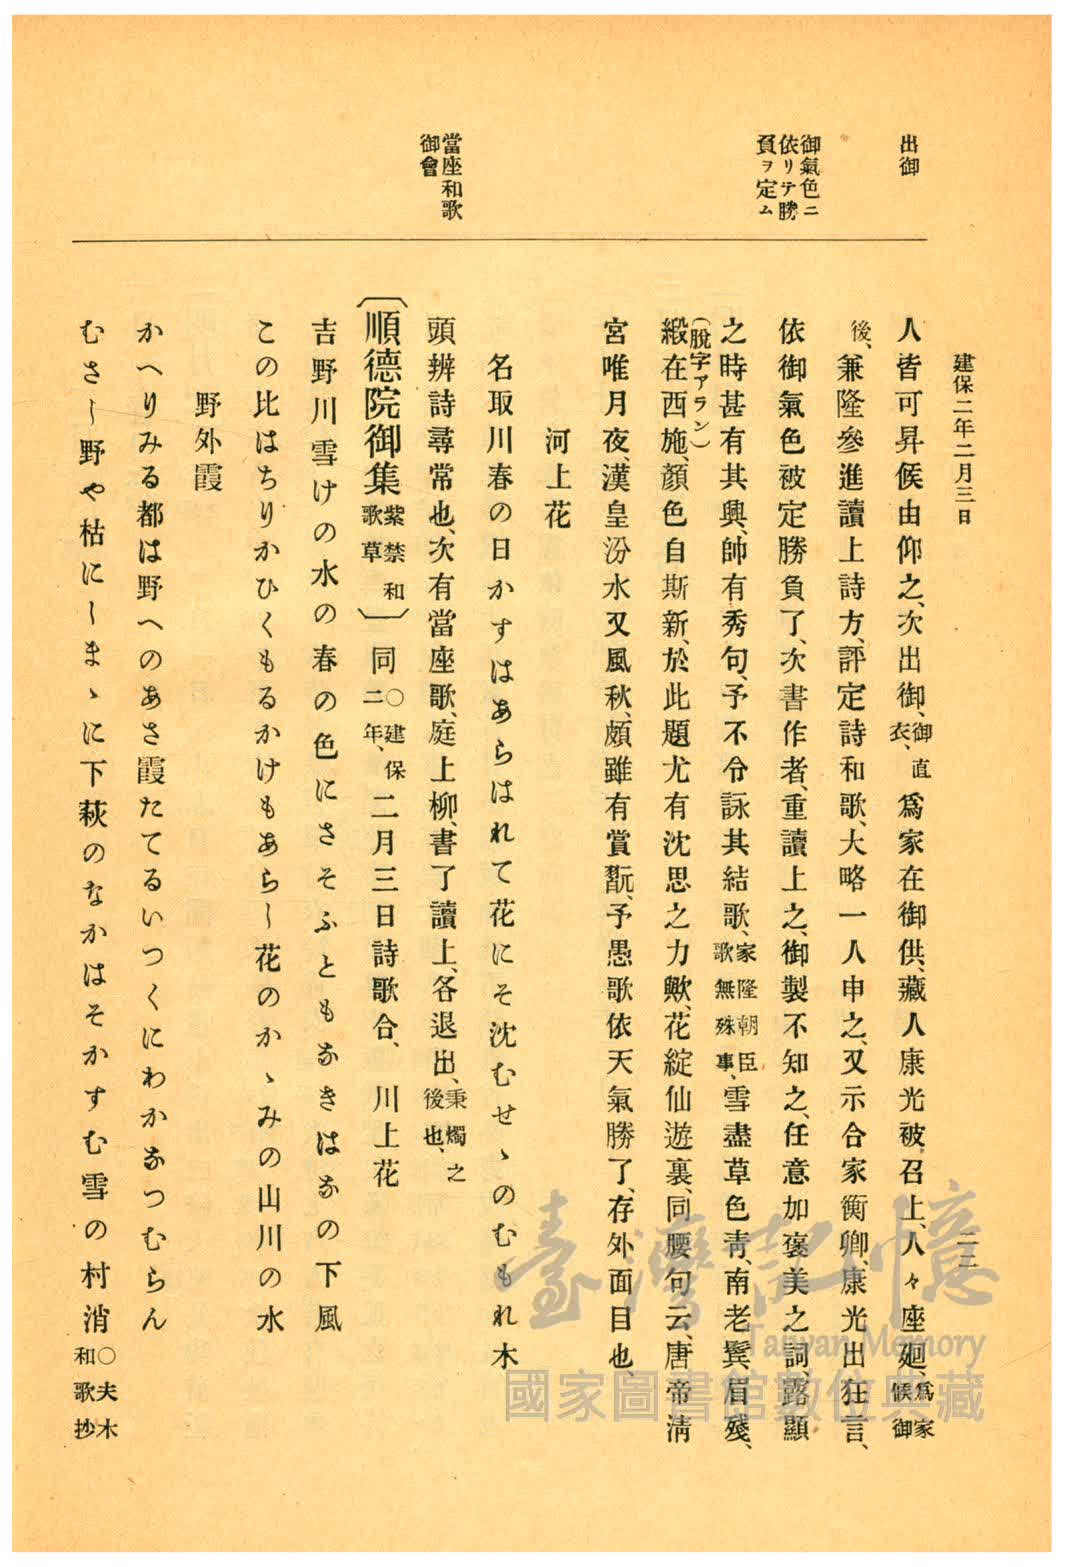 建保二年二月三日
二二
出御
御氣色ニ
依リテ勝
負ヲ定ム
當座和歌
御會
人皆可昇候由仰之、次出御、御直衣、爲家在御供、藏人康光被召上、人々座廻、爲家候御
後、兼隆參進讀上詩方、評定詩和歌、大略一人申之、又示合家衡卿、康光出狂言、
依御氣色被定勝負了、次書作者、重讀上之、御製不知之、任意加褒美之詞、露顯
之時甚有其興、帥有秀句、予不令詠其結歌、家隆朝臣歌無殊事、雪盡草色靑、南老鬂、眉殘、
(脫字アラン)
緞在西施、顏色自斯新、於此題尤有沈思之力歟、花綻仙遊裏、同腰句云、唐帝淸
宮唯月夜、漢皇汾水又風秋、頗雖有賞翫、予愚歌依天氣勝了、存外面目也、
河上花
名取川春の日かすはあらはれて花にそ沈むせゝのむもれ木
頭辨詩尋常也、次有當座歌、庭上柳、書了讀上、各退出、秉燭之後也、
〔順德院御集紫禁和歌草〕同○建保二年、二月三日詩歌合、 川上花
吉野川雪けの水の春の色にさそふともなきはなの下風
この比はちりかひくもるかけもあらし花のかゝみの山川の水
野外霞
かへりみる都は野へのあさ霞たてるいつくにわかなつむらん
むさし野や枯にしまゝに下萩のなかはそかすむ雪の村消○夫木和歌抄
臺灣記憶
Taiwan Memory
國家圖書館數位典藏